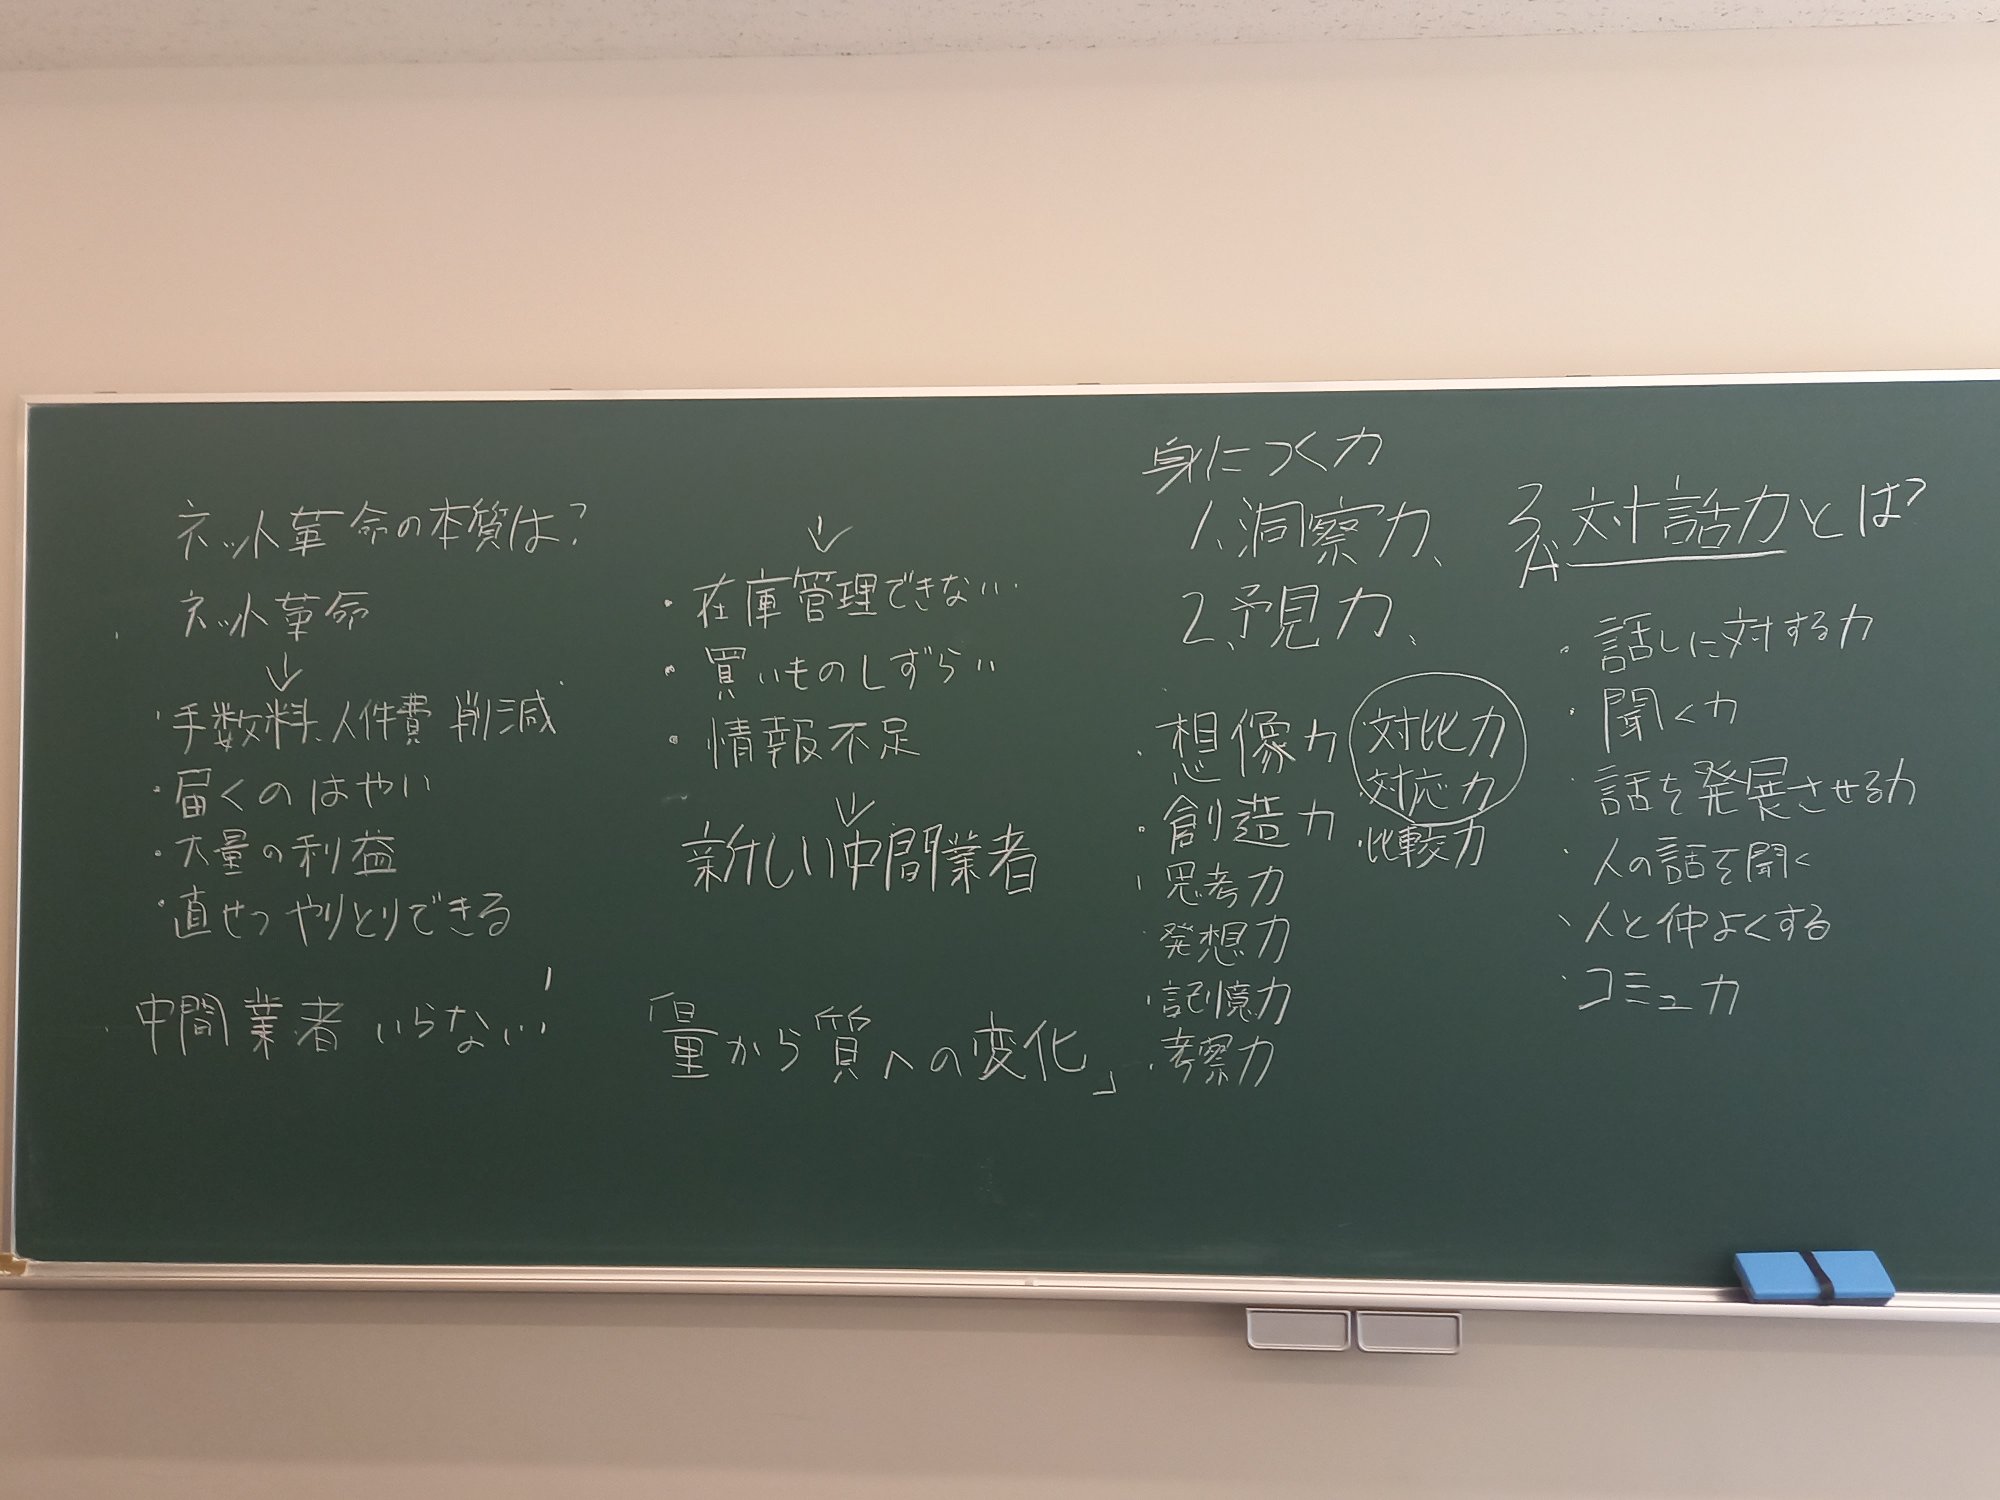 ネット革命の本質は?
ネット革命
↓
・手数料、人件費 削減
・届くのはやい
・大量の利益
・直せつやりとりできる
・中間業者いらない
↓
・在庫管理できない
・買いものしずらい
・情報不足
↓
新しい中間業者
「量から質への変化」
身につく力
1、洞察力、
2、予見力、
・想像力
・創造力
・思考力
・発想力
・記憶力
・考察力
・対比力
対応力
・比較力
3、対話力とは?
・話しに対する力
・聞く力
・話を発展させる力
・人の話を聞く
・人と仲よくする
・コミュ力